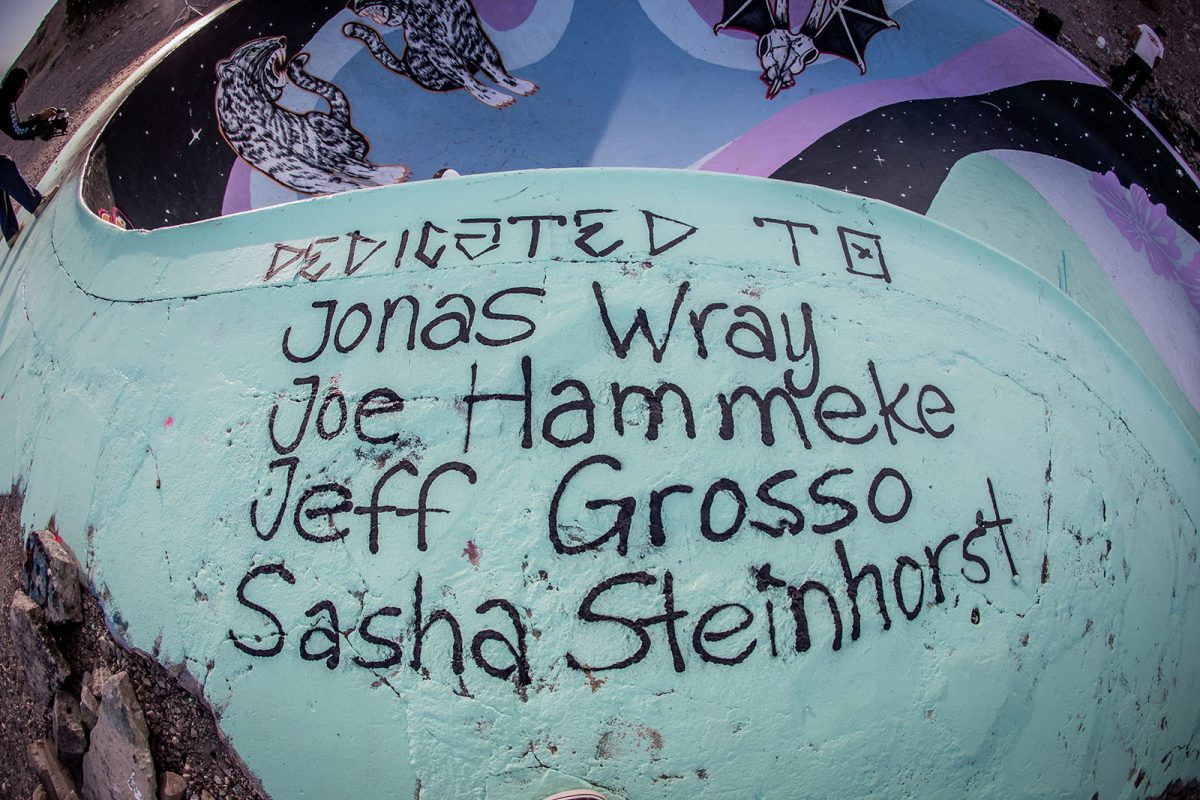 DEDICATED TO
Jonas Wray
Joe Hammeke
Jeff Grosso
Sasha Steinhorst